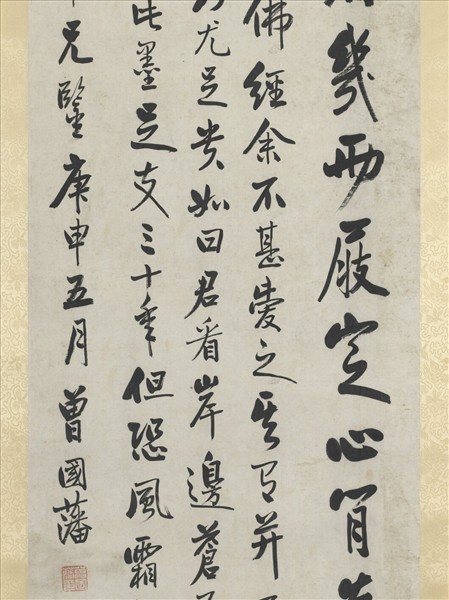 幾兩屐定心肯
佛經余不甚愛之其有并
尤足貴如曰君看岸邊蒼
此墨足支三十年但恐風霜
兄鑒庚申五月曾國藩